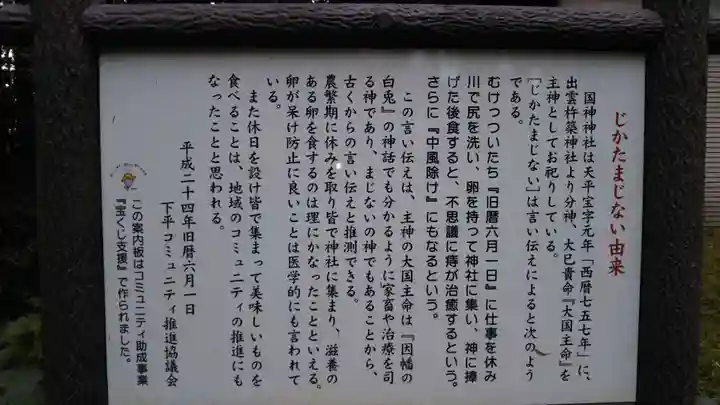 じかたまじない由来
国神神社は天平宝字元年「西暦七五七年」に、
出雲杵築神社より分神、大巳貴命『大国主命』を
主神としてお祀りしている。
「じかたまじない」は言い伝えによると次のよう
である。
むけっついたち『旧暦六月一日』に仕事を休み
川で尻を洗い、卵を持って神社に集い、神に捧
げた後食すると、不思議に痔が治癒するという。
さらに『中風除け』にもなるという。
この言い伝えは、主神の大国主命は『因幡の
白兎』の神話でも分かるように家畜や治療を司
る神であり、まじないの神でもあることから、
古くからの言い伝えと推測できる。
農繁期に休みを取り皆で神社に集まり、滋養の
ある卵を食するのは理にかなったことといえる。
卵が呆け防止に良いことは医学的にも言われて
いる。
また休日を設け皆で集まって美味しいものを
食べることは、地域のコミュニティの推進にも
なったことと思われる。
平成二十四年旧暦六月一日
下平コミュニティ推進協議会
この案内板はコミュニティ助成事業
『宝くじ支援』で作られました。